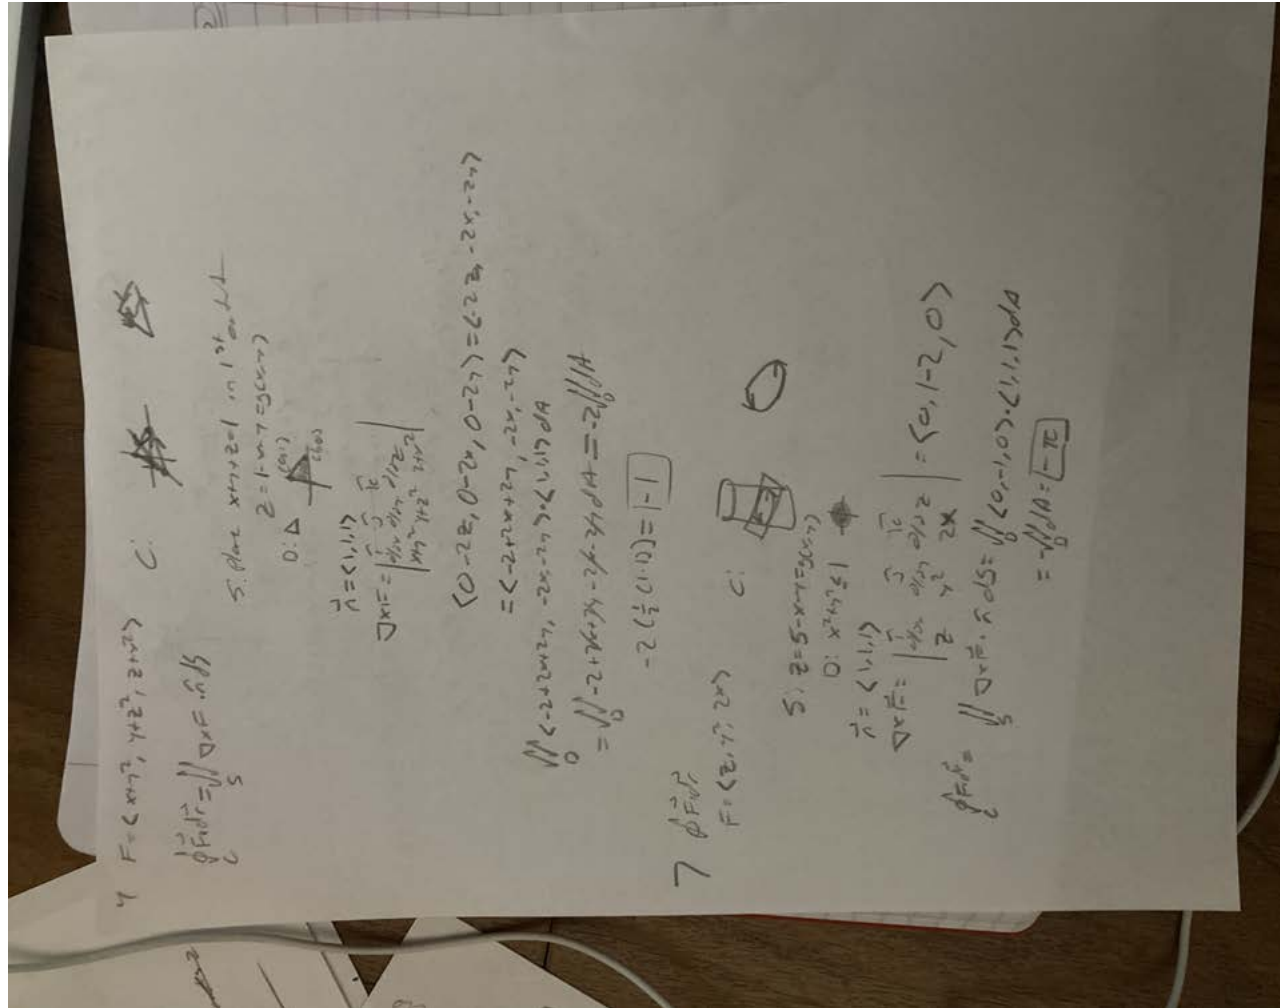 4 F=<x+y², y+z², z+x²> C:
∮F·dr⃗=∬∇×F·n̂ dS
C S
S: plane x+y+z=1 in 1st octant
z=1-x-y=g(x,y)
D: (0,1)
(1,0)
n⃗=<1,1,1>
∇×F= | i j k
∂/∂x ∂/∂y ∂/∂z
x+y² y+z² z+x² |
<0-2z, 0-2x, 0-2y>=<-2z, -2x, -2y>
=<-2+2x+2y, -2x, -2y>
∬<-2+2x+2y, -2x, -2y>·<1,1,1>dA
D
=∬-2+2x+2y-2x-2y dA = -2∬dA
D D
-2(½(1·1))= -1
7 ∮F⃗·dr⃗
F=<z, y², 2x> C:
S: z=5-x-y=g(x,y)
D: x²+y²≤1
n⃗=<1,1,1>
∇×F= | i j k
∂/∂x ∂/∂y ∂/∂z
z y² 2x | =<0, 1-2, 0>
∮F·dr⃗= ∬∇×F·n̂ dS=∬<0,-1,0>·<1,1,1>dA
C S D
=-∬dA= -π
D